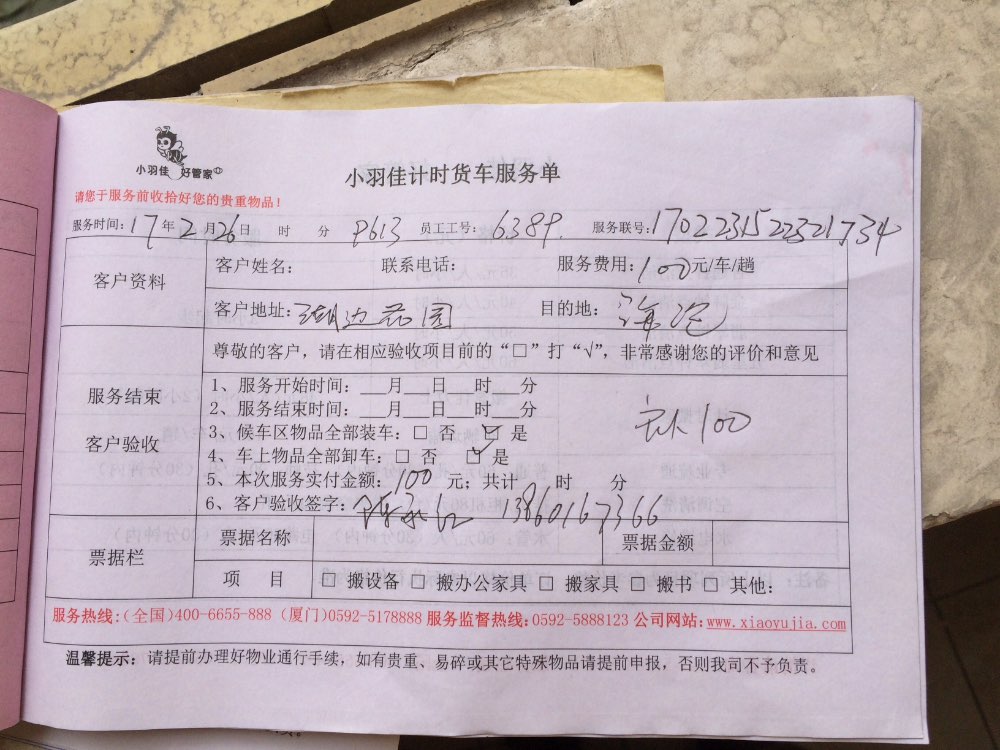 小羽佳 好管家
小羽佳计时货车服务单
请您于服务前收拾好您的贵重物品！
服务时间：17年2月26日 时 分 P613 员工工号：6389. 服务联号：1702231522321734
客户资料
客户姓名： 联系电话： 服务费用：100元/车/趟
客户地址：湖边花园 目的地：海沧
服务结束
客户验收
尊敬的客户，请在相应验收项目前的“□”打“√”，非常感谢您的评价和意见
1、服务开始时间：___月___日___时___分
2、服务结束时间：___月___日___时___分
3、候车区物品全部装车：□ 否 ☑ 是
4、车上物品全部卸车：□ 否 ☑ 是
5、本次服务实付金额：100元；共计 时 分
6、客户验收签字： 13860167366
100
票据栏
票据名称 票据金额
项 目 □ 搬设备 □ 搬办公家具 □ 搬家具 □ 搬书 □ 其他：
服务热线：（全国）400-6655-888（厦门）0592-5178888 服务监督热线：0592-5888123 公司网站：www.xiaoyujia.com
温馨提示：请提前办理好物业通行手续，如有贵重、易碎或其它特殊物品请提前申报，否则我司不予负责。